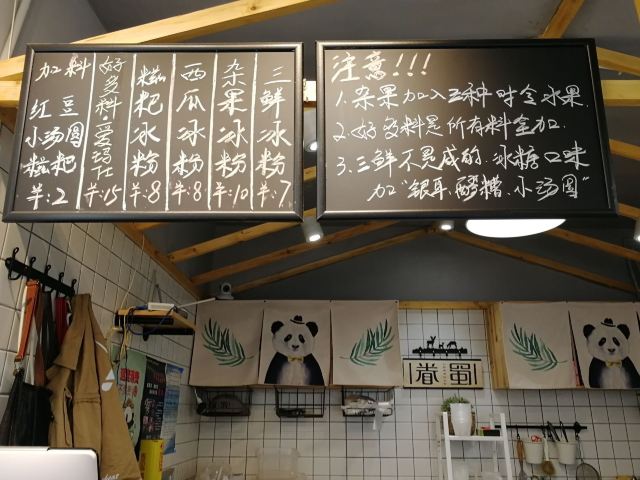 加料
红豆
小汤圆
糍粑
¥:2
好多料·爱玛仕
¥:15
糍粑冰粉
¥:8
西瓜冰粉
¥:8
杂果冰粉
¥:10
三鲜冰粉
¥:7
注意!!!
1.杂果加入五种时令水果.
2.好多料是所有料全加.
3.三鲜不是咸的.冰糖口味
加"银耳.醪糟.小汤圆"
眷蜀